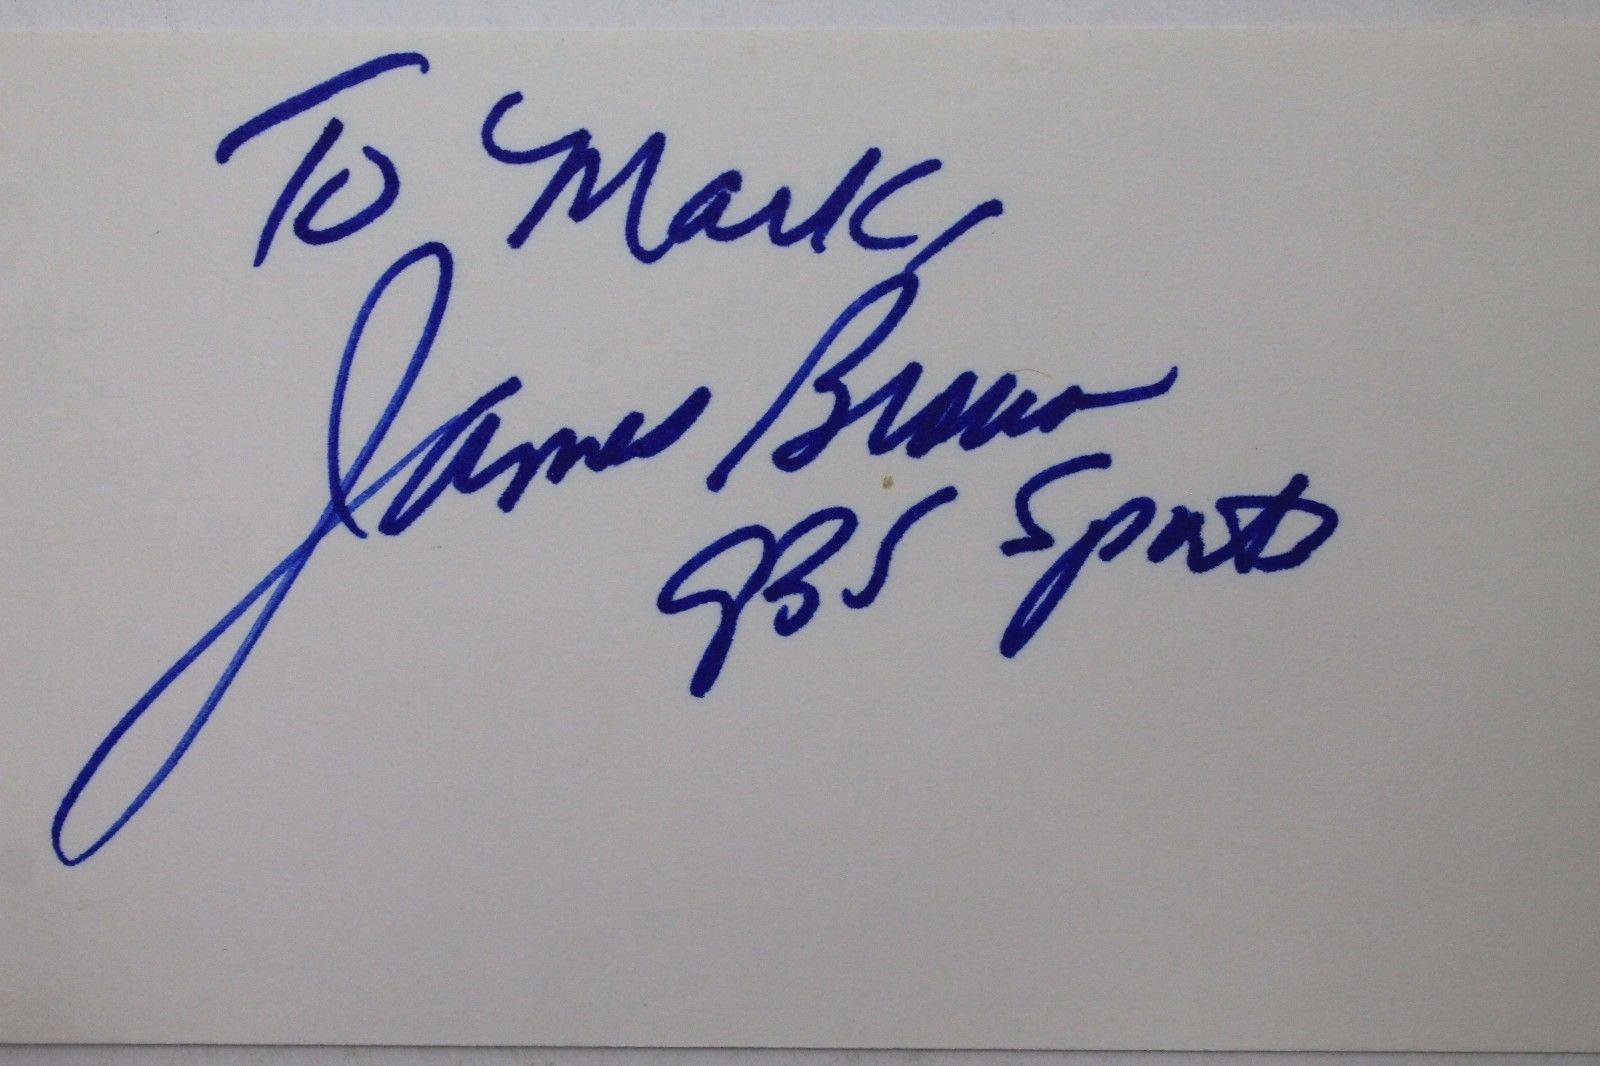 To Mark,
James Brown
CBS Sports